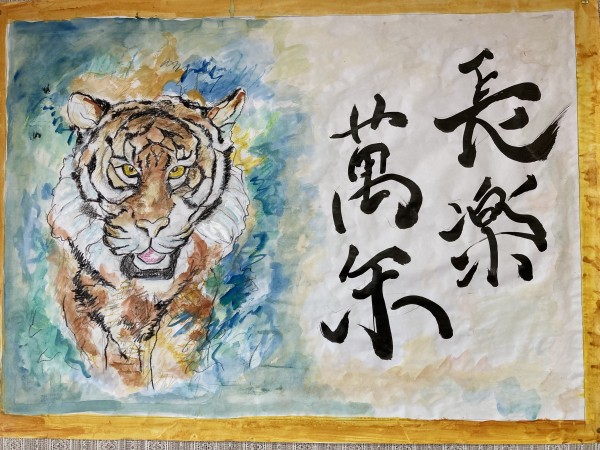 長楽
萬年